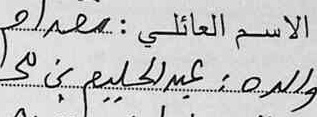 الاسم العائلي : مصدام
والده : عبد الحليم بن